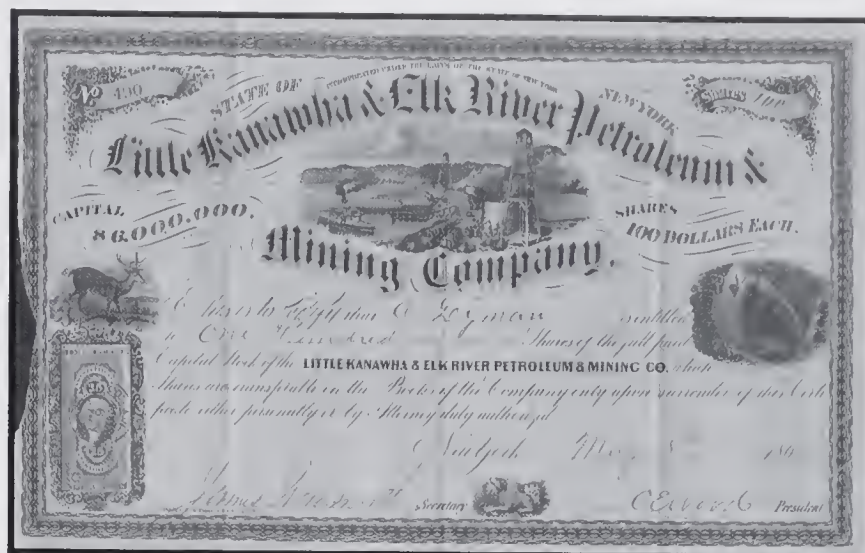 INCORPORATED UNDER THE LAWS OF THE STATE OF NEW YORK
No 490
STATE OF NEW YORK
Shares 100
Little Kanawha & Elk River Petroleum &
CAPITAL
$6,000,000.
SHARES
100 DOLLARS EACH.
Mining Company.
that C Lyman is entitled
to One Hundred Shares of the full paid
Capital Stock of the LITTLE KANAWHA & ELK RIVER PETROLEUM & MINING CO. which
Shares are transferable on the Books of the Company only upon surrender of this Certi
ficate either personally or by Attorney duly authorized
New York
Secretary
President